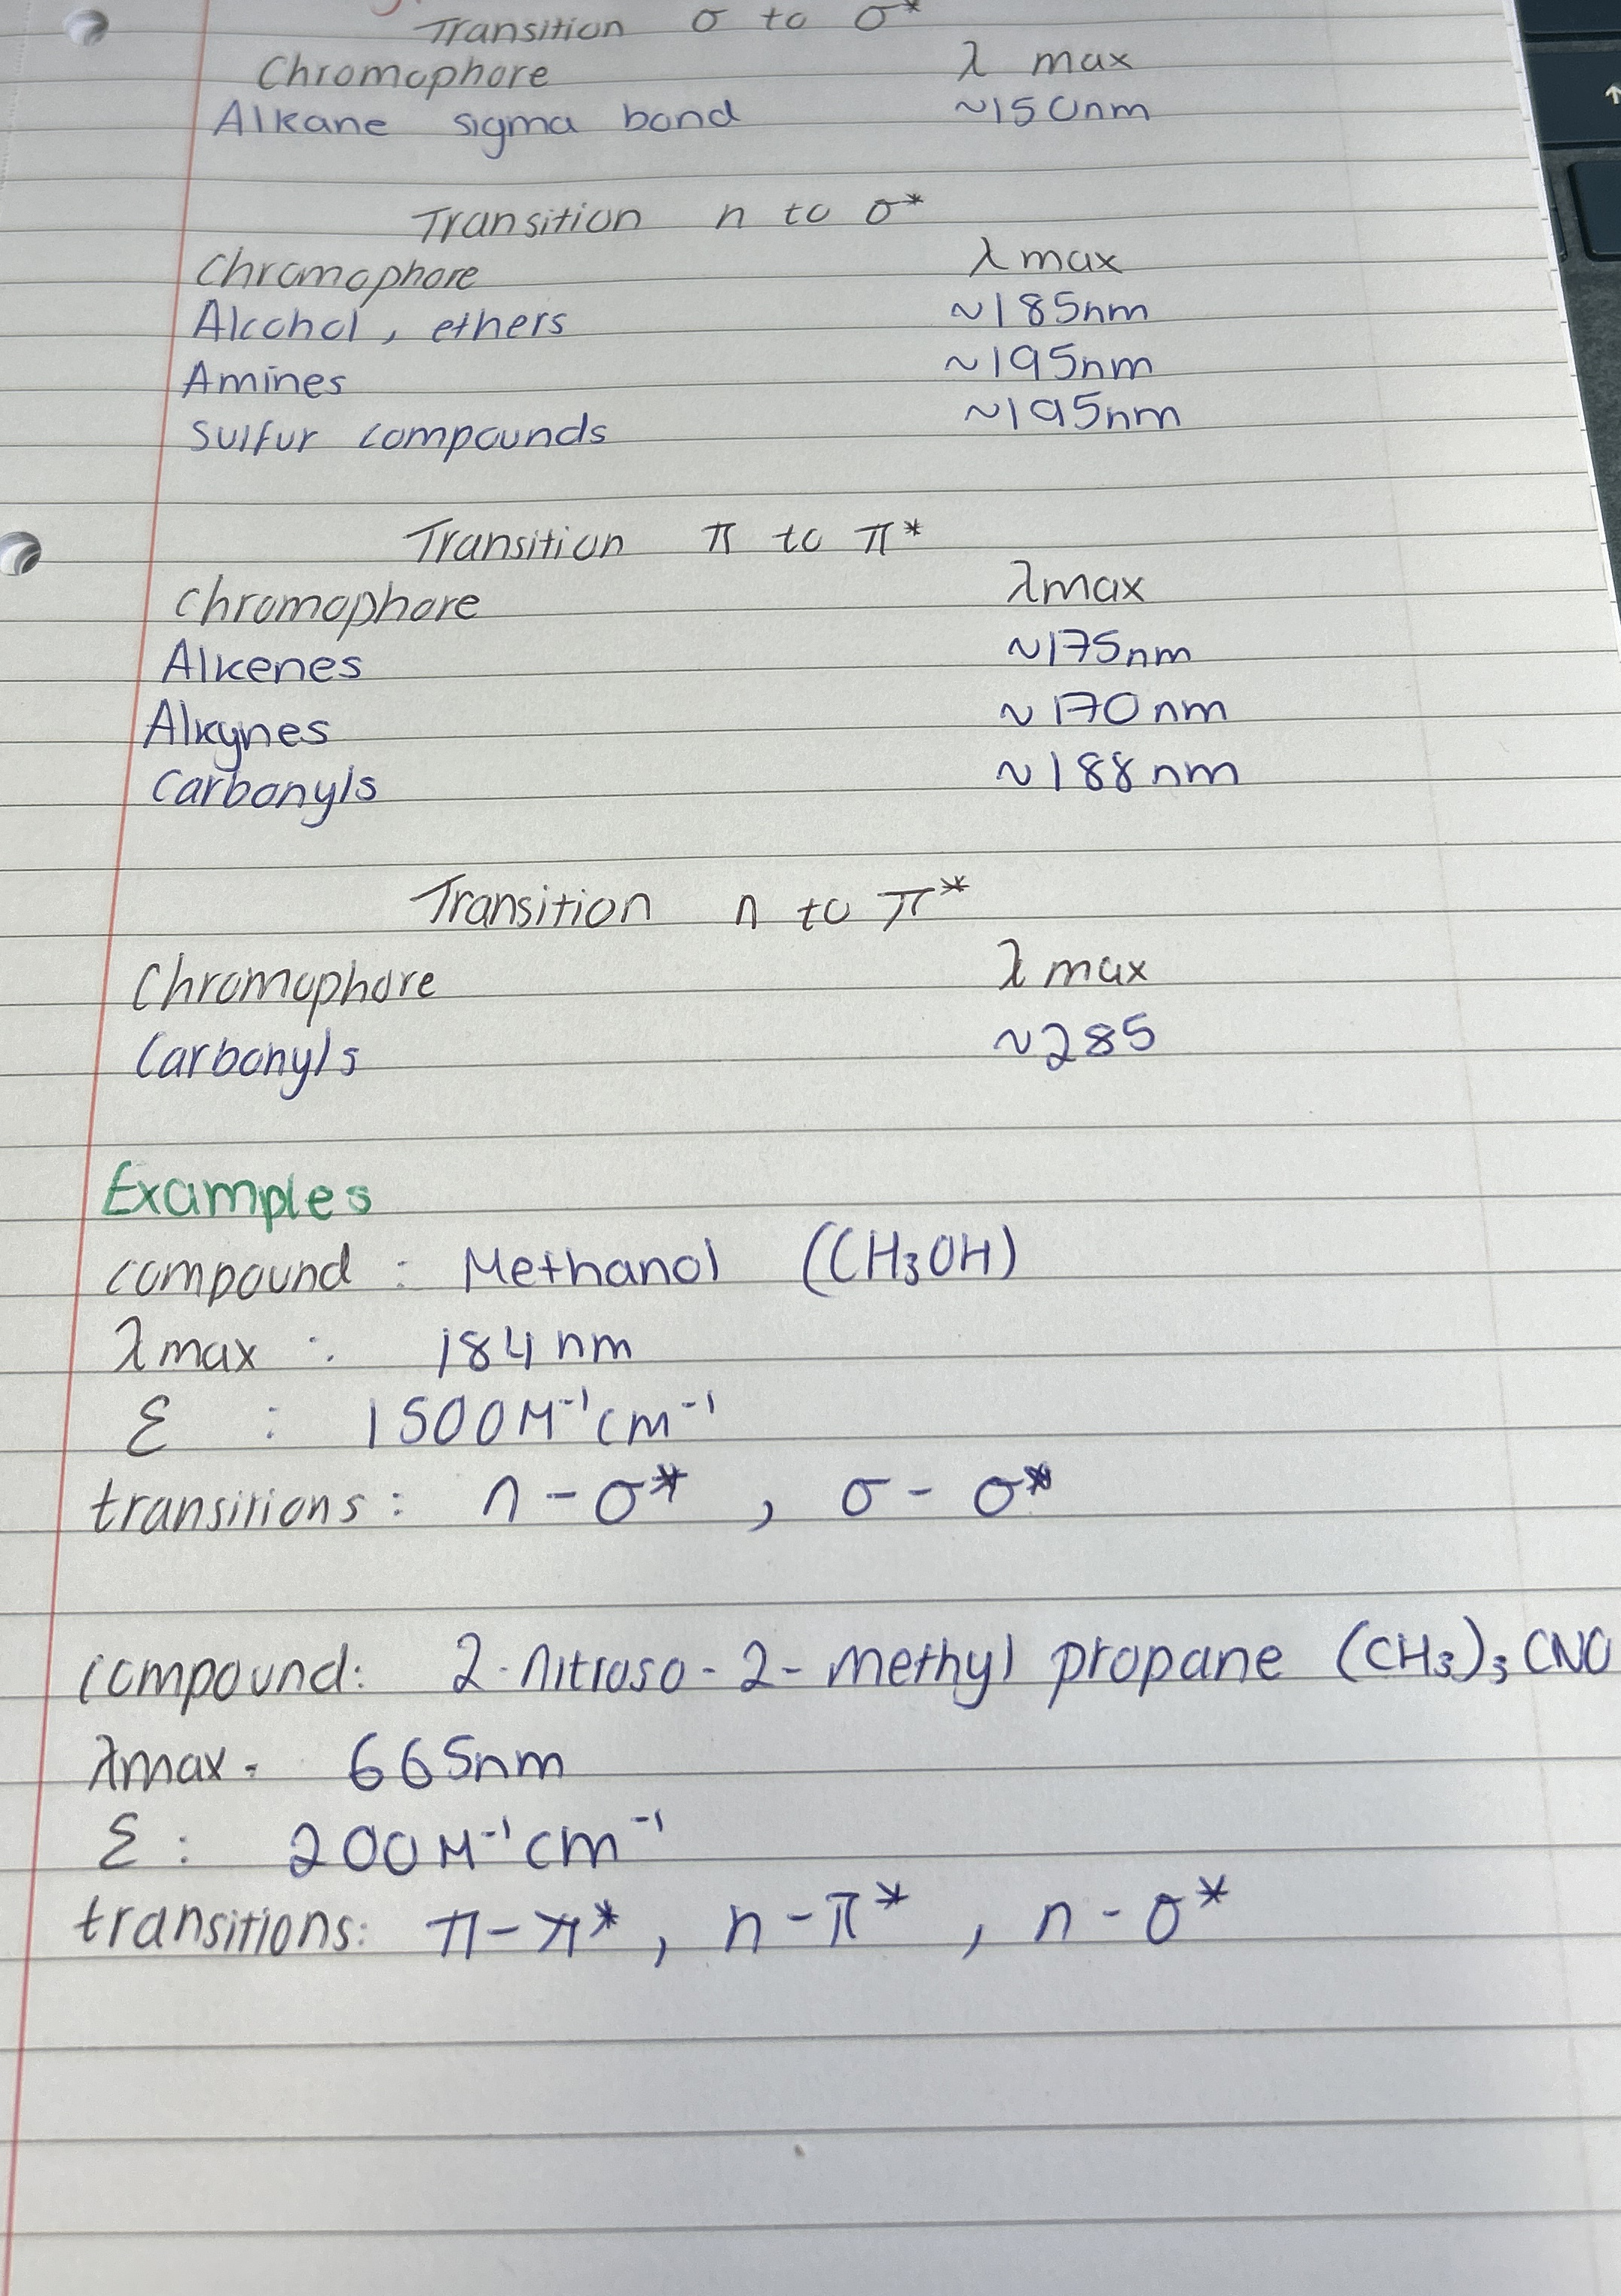 Transition σ to σ*
Chromophore λ max
Alkane sigma bond ~150nm
Transition n to σ*
Chromophore λ max
Alcohol, ethers ~185nm
Amines ~195nm
Sulfur compounds ~195nm
Transition π to π*
Chromophore λmax
Alkenes ~175nm
Alkynes ~170nm
Carbonyls ~188nm
Transition n to π*
Chromophore λ max
Carbonyls ~285
Examples
compound : Methanol (CH₃OH)
λmax : 184nm
ε : 1500M⁻¹cm⁻¹
transitions: n-σ* , σ-σ*
compound: 2-nitroso-2-methyl propane (CH₃)₃CNO
λmax- 665nm
ε: 200M⁻¹cm⁻¹
transitions: π-π*, n-π*, n-σ*